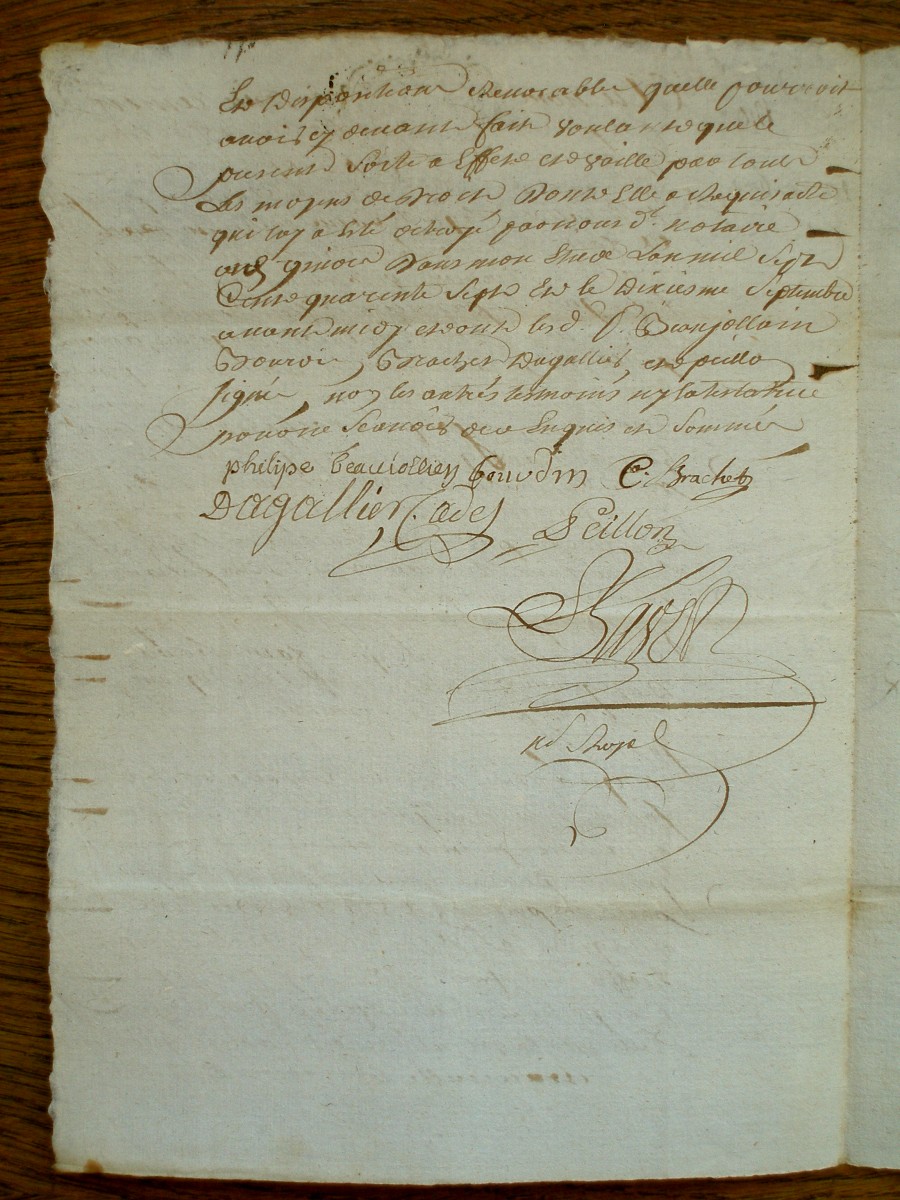 Et disposition revocable quelle pourroit
avoir cy devant fait voulant que le
present sorte a effect et vaille par tout
les moyens de droit dont elle a requis acte
qui luy a eté octroyé par nous d. notaire
dans mon Etude L'an mil sept
Cent quarente sept Et le dixiesme septembre
avant midy et ont les d. Beaujollain
Bourdin Brachet Dagallier et peillon
signé, non les autres temoins ny la testatrice
pour ne sçavoir de ce Enquis et sommé
philipe beaujollin bourdin C. brachet
Dagallier Cadet Peillon
Ravet
nre Royal